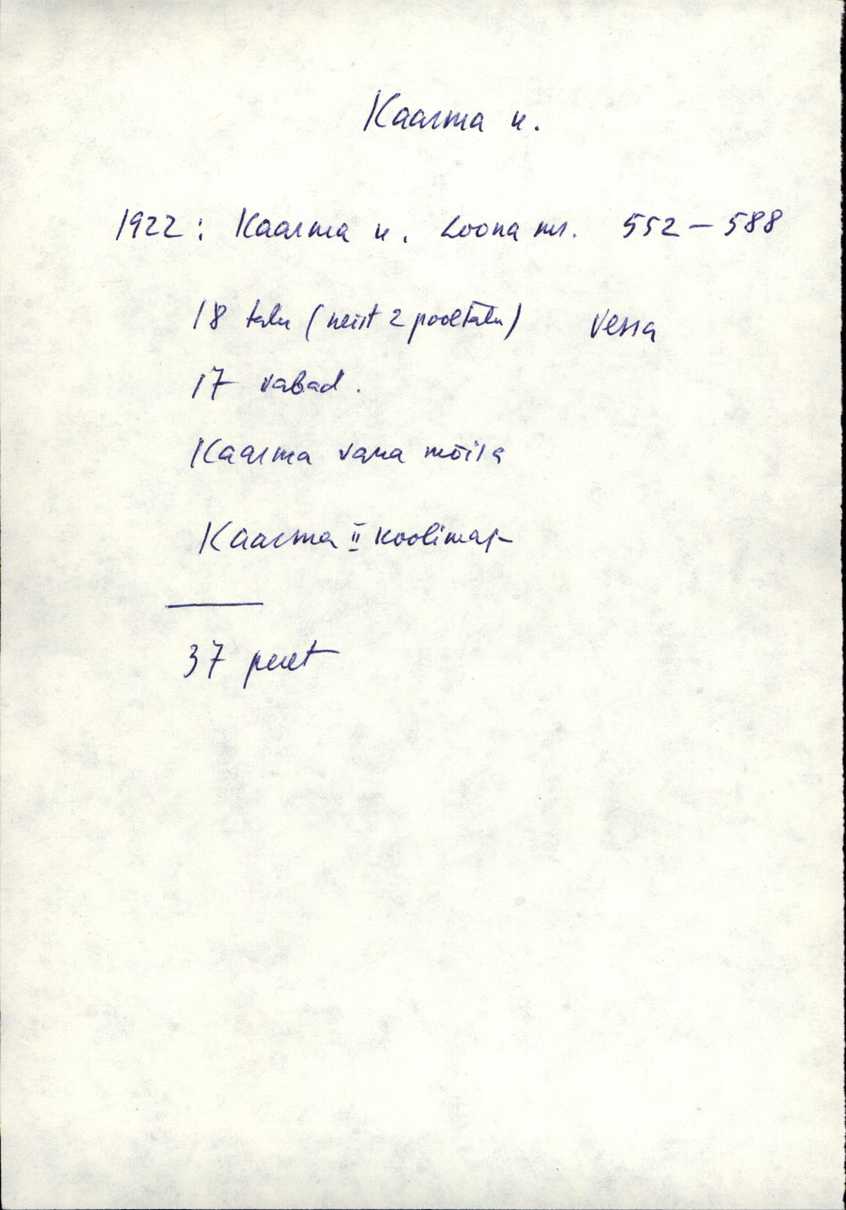 Kaarma k.
1922: Kaarma k. Loona mr. 552 – 588
18 talu (neist 2 pooltalu) Vessa
17 vabad.
Kaarma vana mõisa
Kaarma II koolimaj-
37 peret